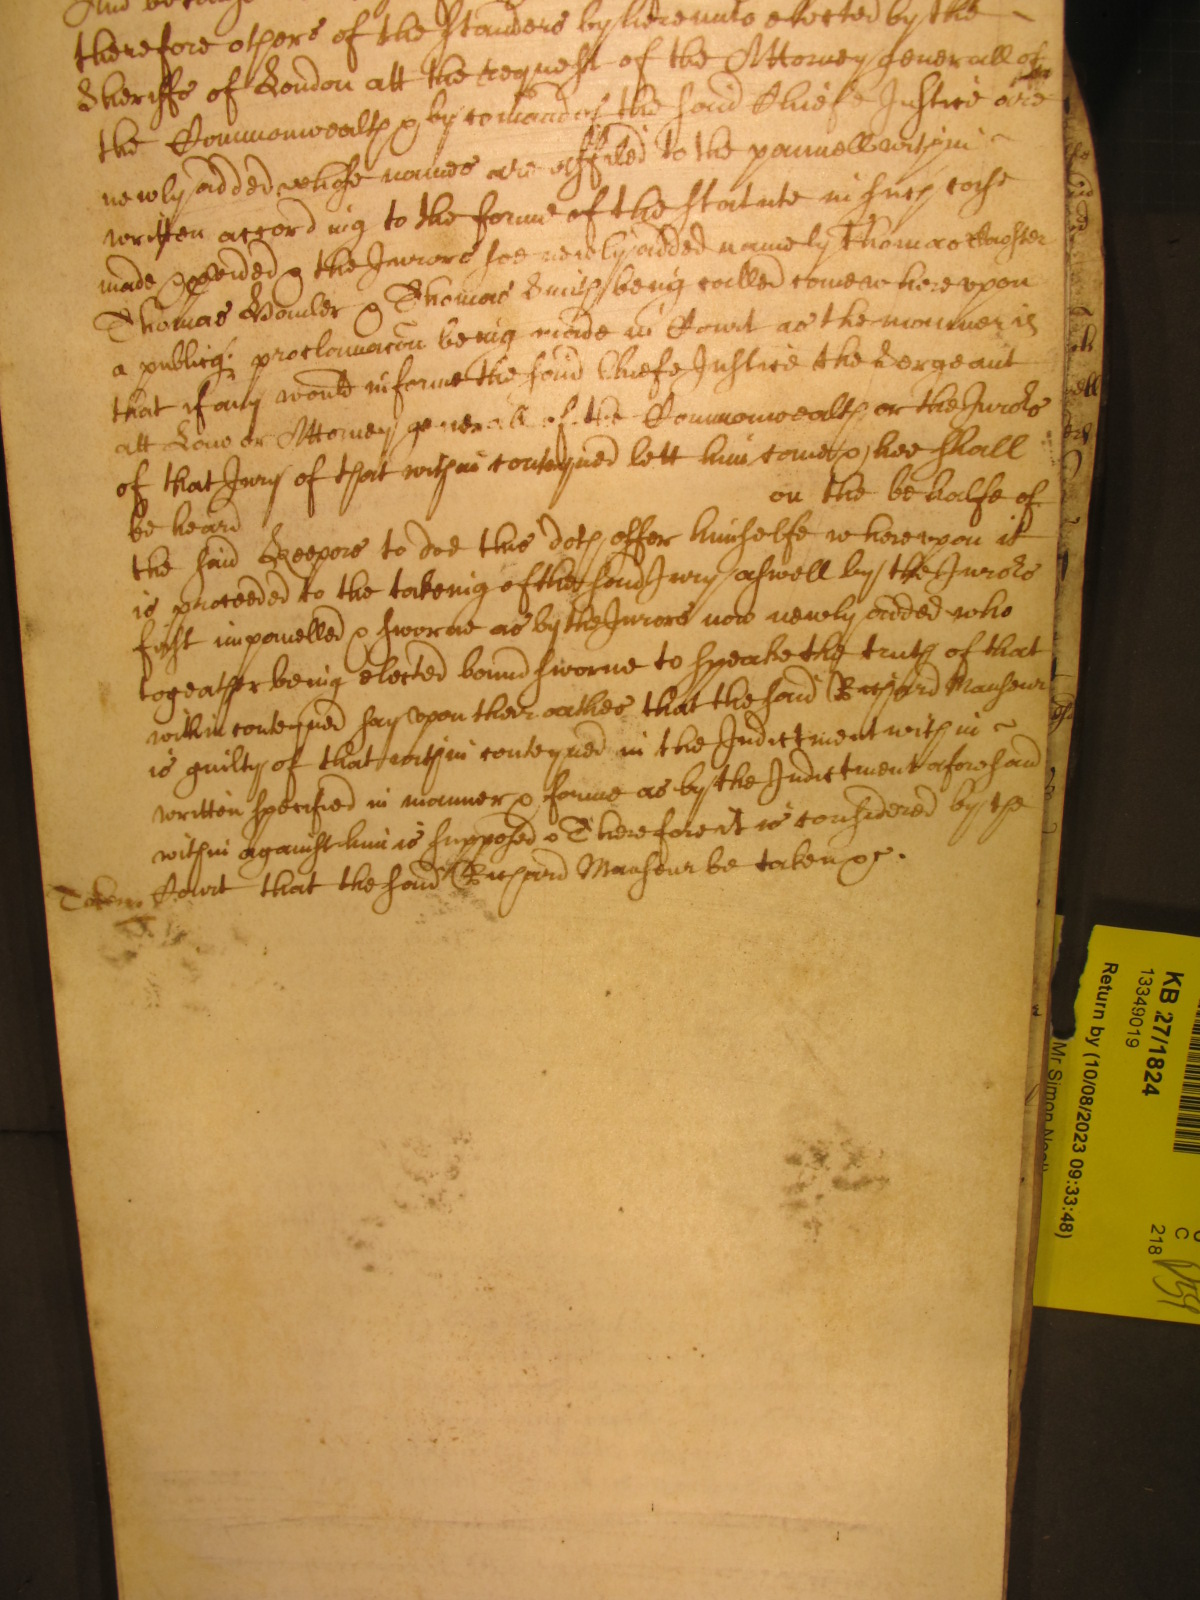 And because
therefore others of the standers by hereunto elected by the
Sheriffs of London att the request of the Attorney generall of
the Commonwealth & by comand of the said Chiefe Justice are
newly added whose names are affiled to the pannell within
written according to the forme of the statute in such case
made & provided & the Jurors soe newly added namely Thomas
Thomas Bowler & Thomas Smith being called come whereupon
a publiq proclamacōn being made in Court as the manner is
that if any would informe the said Chiefe Justice the Sergeant
att Law or Attorney generall of the Commonwealth or the Jurors
of that Jury of that within conteyned lett him come & hee shall
be heard on the behalfe of
the said Keepers to doe this doth offer himselfe whereupon it
is proceeded to the takeing of the said Jury aswell by the Jurors
first impanelled & sworne as by the Jurors now newly added who
togeather being elected bound sworne to speake the truth of that
within conteyned say upon their oathes that the said Richard Manseur
is guilty of that within conteyned in the Indictment within
written specified in manner & forme as by the Indictment aforesaid
within against him is supposed & Therefore it is considered by the
Court that the said Richard Manseur be taken &c.
Taken
KB 27/1824
13349019
Return by (10/08/2023 09:33:48)
Mr Simon Neal
C
218